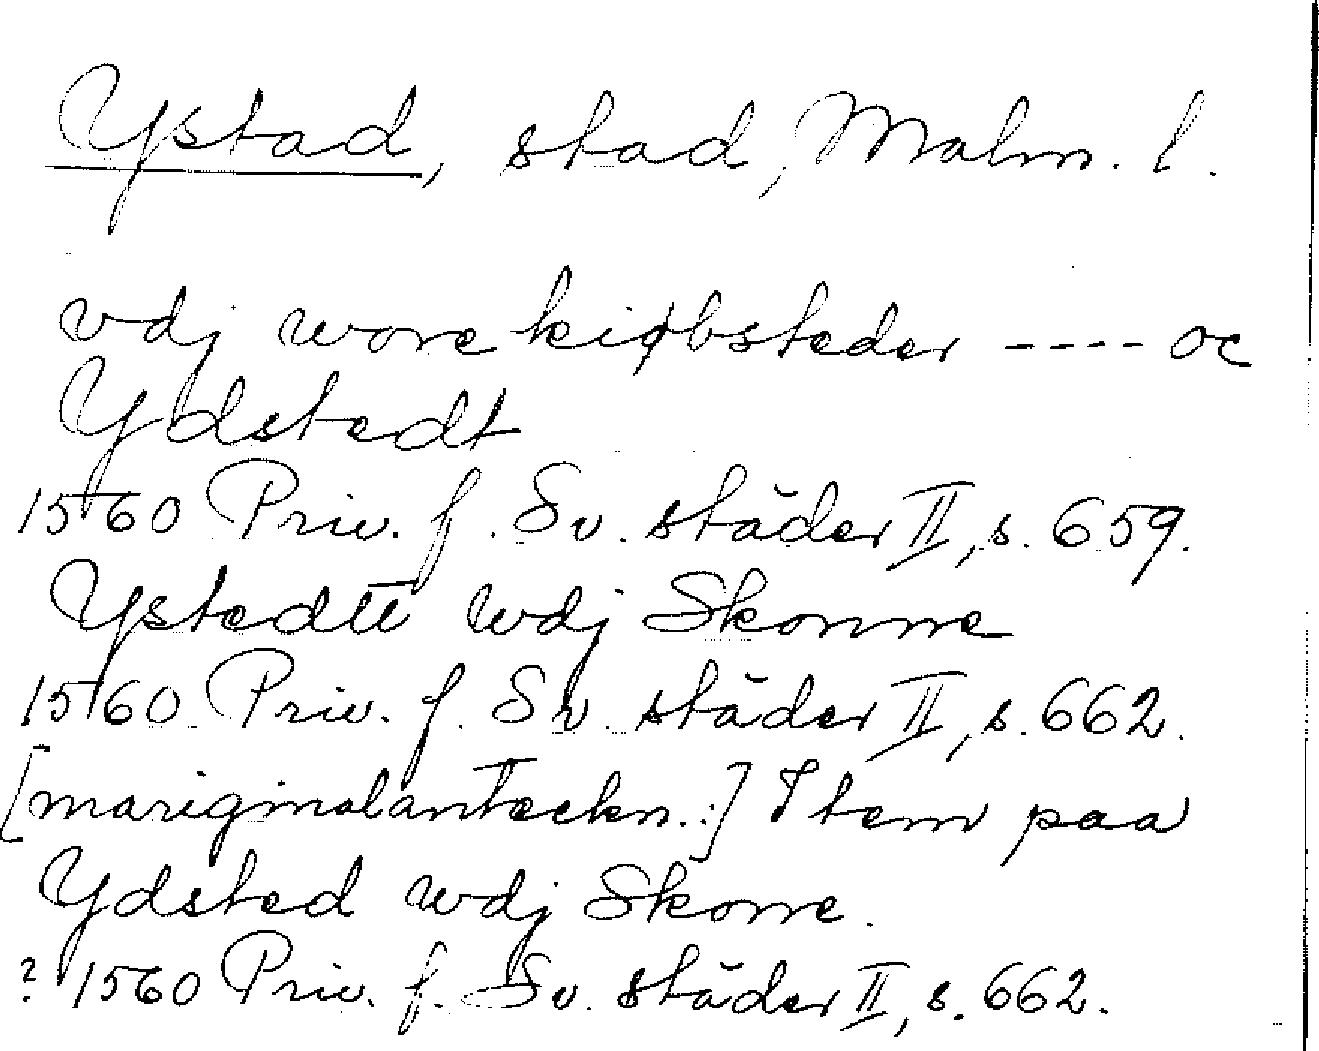 Ystad, stad, Malm. l.
vdj wore kiøbsteder ---- oc
Ydstedt
1560 Priv. f. Sv. städer II, s. 659.
Ystedtt wdj Skonne
1560 Priv. f. Sv. städer II, s. 662.
[mariginalanteckn.:] Item paa
Ydsted wdj Skone.
? 1560 Priv. f. Sv. städer II, s. 662.